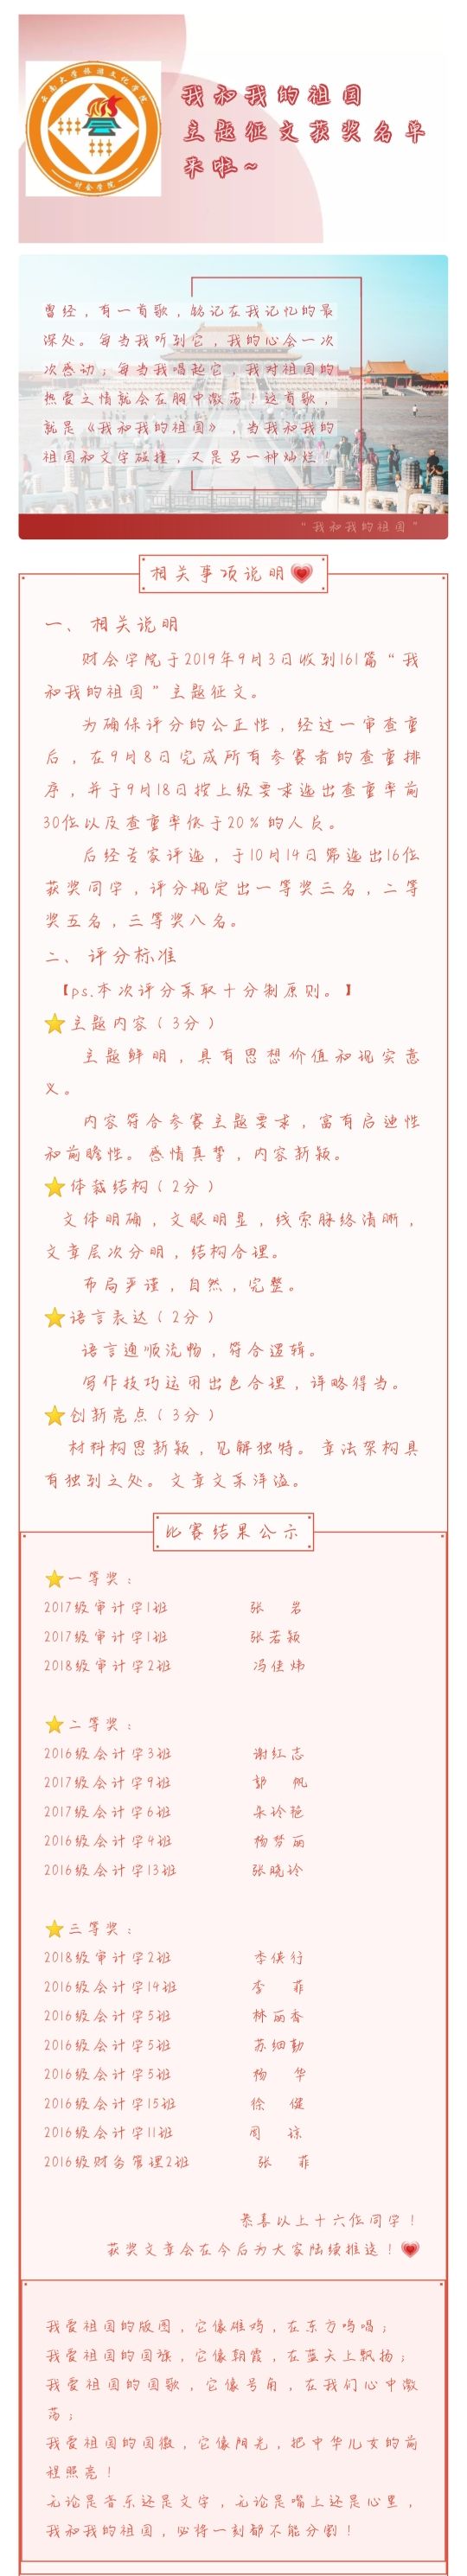 云南大学旅游文化学院
财会学院
我和我的祖国
主题征文获奖名单
来啦~
曾经，有一首歌，铭记在我记忆的最
深处。每当我听到它，我的心会一次
次感动；每当我唱起它，我对祖国的
热爱之情就会在胸中激荡！这首歌，
就是《我和我的祖国》，当我和我的
祖国和文字碰撞，又是另一种灿烂！
“我和我的祖国”
相关事项说明
一、相关说明
财会学院于2019年9月3日收到161篇“我
和我的祖国”主题征文。
为确保评分的公正性，经过一审查重
后，在9月8日完成所有参赛者的查重排
序，并于9月18日按上级要求选出查重率前
30位以及查重率低于20％的人员。
后经专家评选，于10月14日筛选出16位
获奖同学，评分规定出一等奖三名，二等
奖五名，三等奖八名。
二、评分标准
【ps.本次评分采取十分制原则。】
⭐主题内容（3分）
主题鲜明，具有思想价值和现实意
义。
内容符合参赛主题要求，富有启迪性
和前瞻性。感情真挚，内容新颖。
⭐体裁结构（2分）
文体明确，文眼明显，线索脉络清晰，
文章层次分明，结构合理。
布局严谨，自然，完整。
⭐语言表达（2分）
语言通顺流畅，符合逻辑。
写作技巧运用出色合理，详略得当。
⭐创新亮点（3分）
材料构思新颖，见解独特。章法架构具
有独到之处。文章文采洋溢。
比赛结果公示
⭐一等奖：
2017级审计学1班 张 岩
2017级审计学1班 张若颖
2018级审计学2班 冯佳炜
⭐二等奖：
2016级会计学3班 谢红志
2017级会计学9班 郭 帆
2017级会计学6班 朱玲艳
2016级会计学4班 杨梦丽
2016级会计学13班 张晓玲
⭐三等奖：
2018级审计学2班 李侠行
2016级会计学14班 李 菲
2016级会计学5班 林丽香
2016级会计学5班 苏细勤
2016级会计学5班 杨 华
2016级会计学15班 徐 健
2016级会计学11班 周 琼
2016级财务管理2班 张 菲
恭喜以上十六位同学！
获奖文章会在今后为大家陆续推送！
我爱祖国的版图，它像雄鸡，在东方鸣唱；
我爱祖国的国旗，它像朝霞，在蓝天上飘扬；
我爱祖国的国歌，它像号角，在我们心中激
荡；
我爱祖国的国徽，它像阳光，把中华儿女的前
程照亮！
无论是音乐还是文字，无论是嘴上还是心里，
我和我的祖国，必将一刻都不能分割！